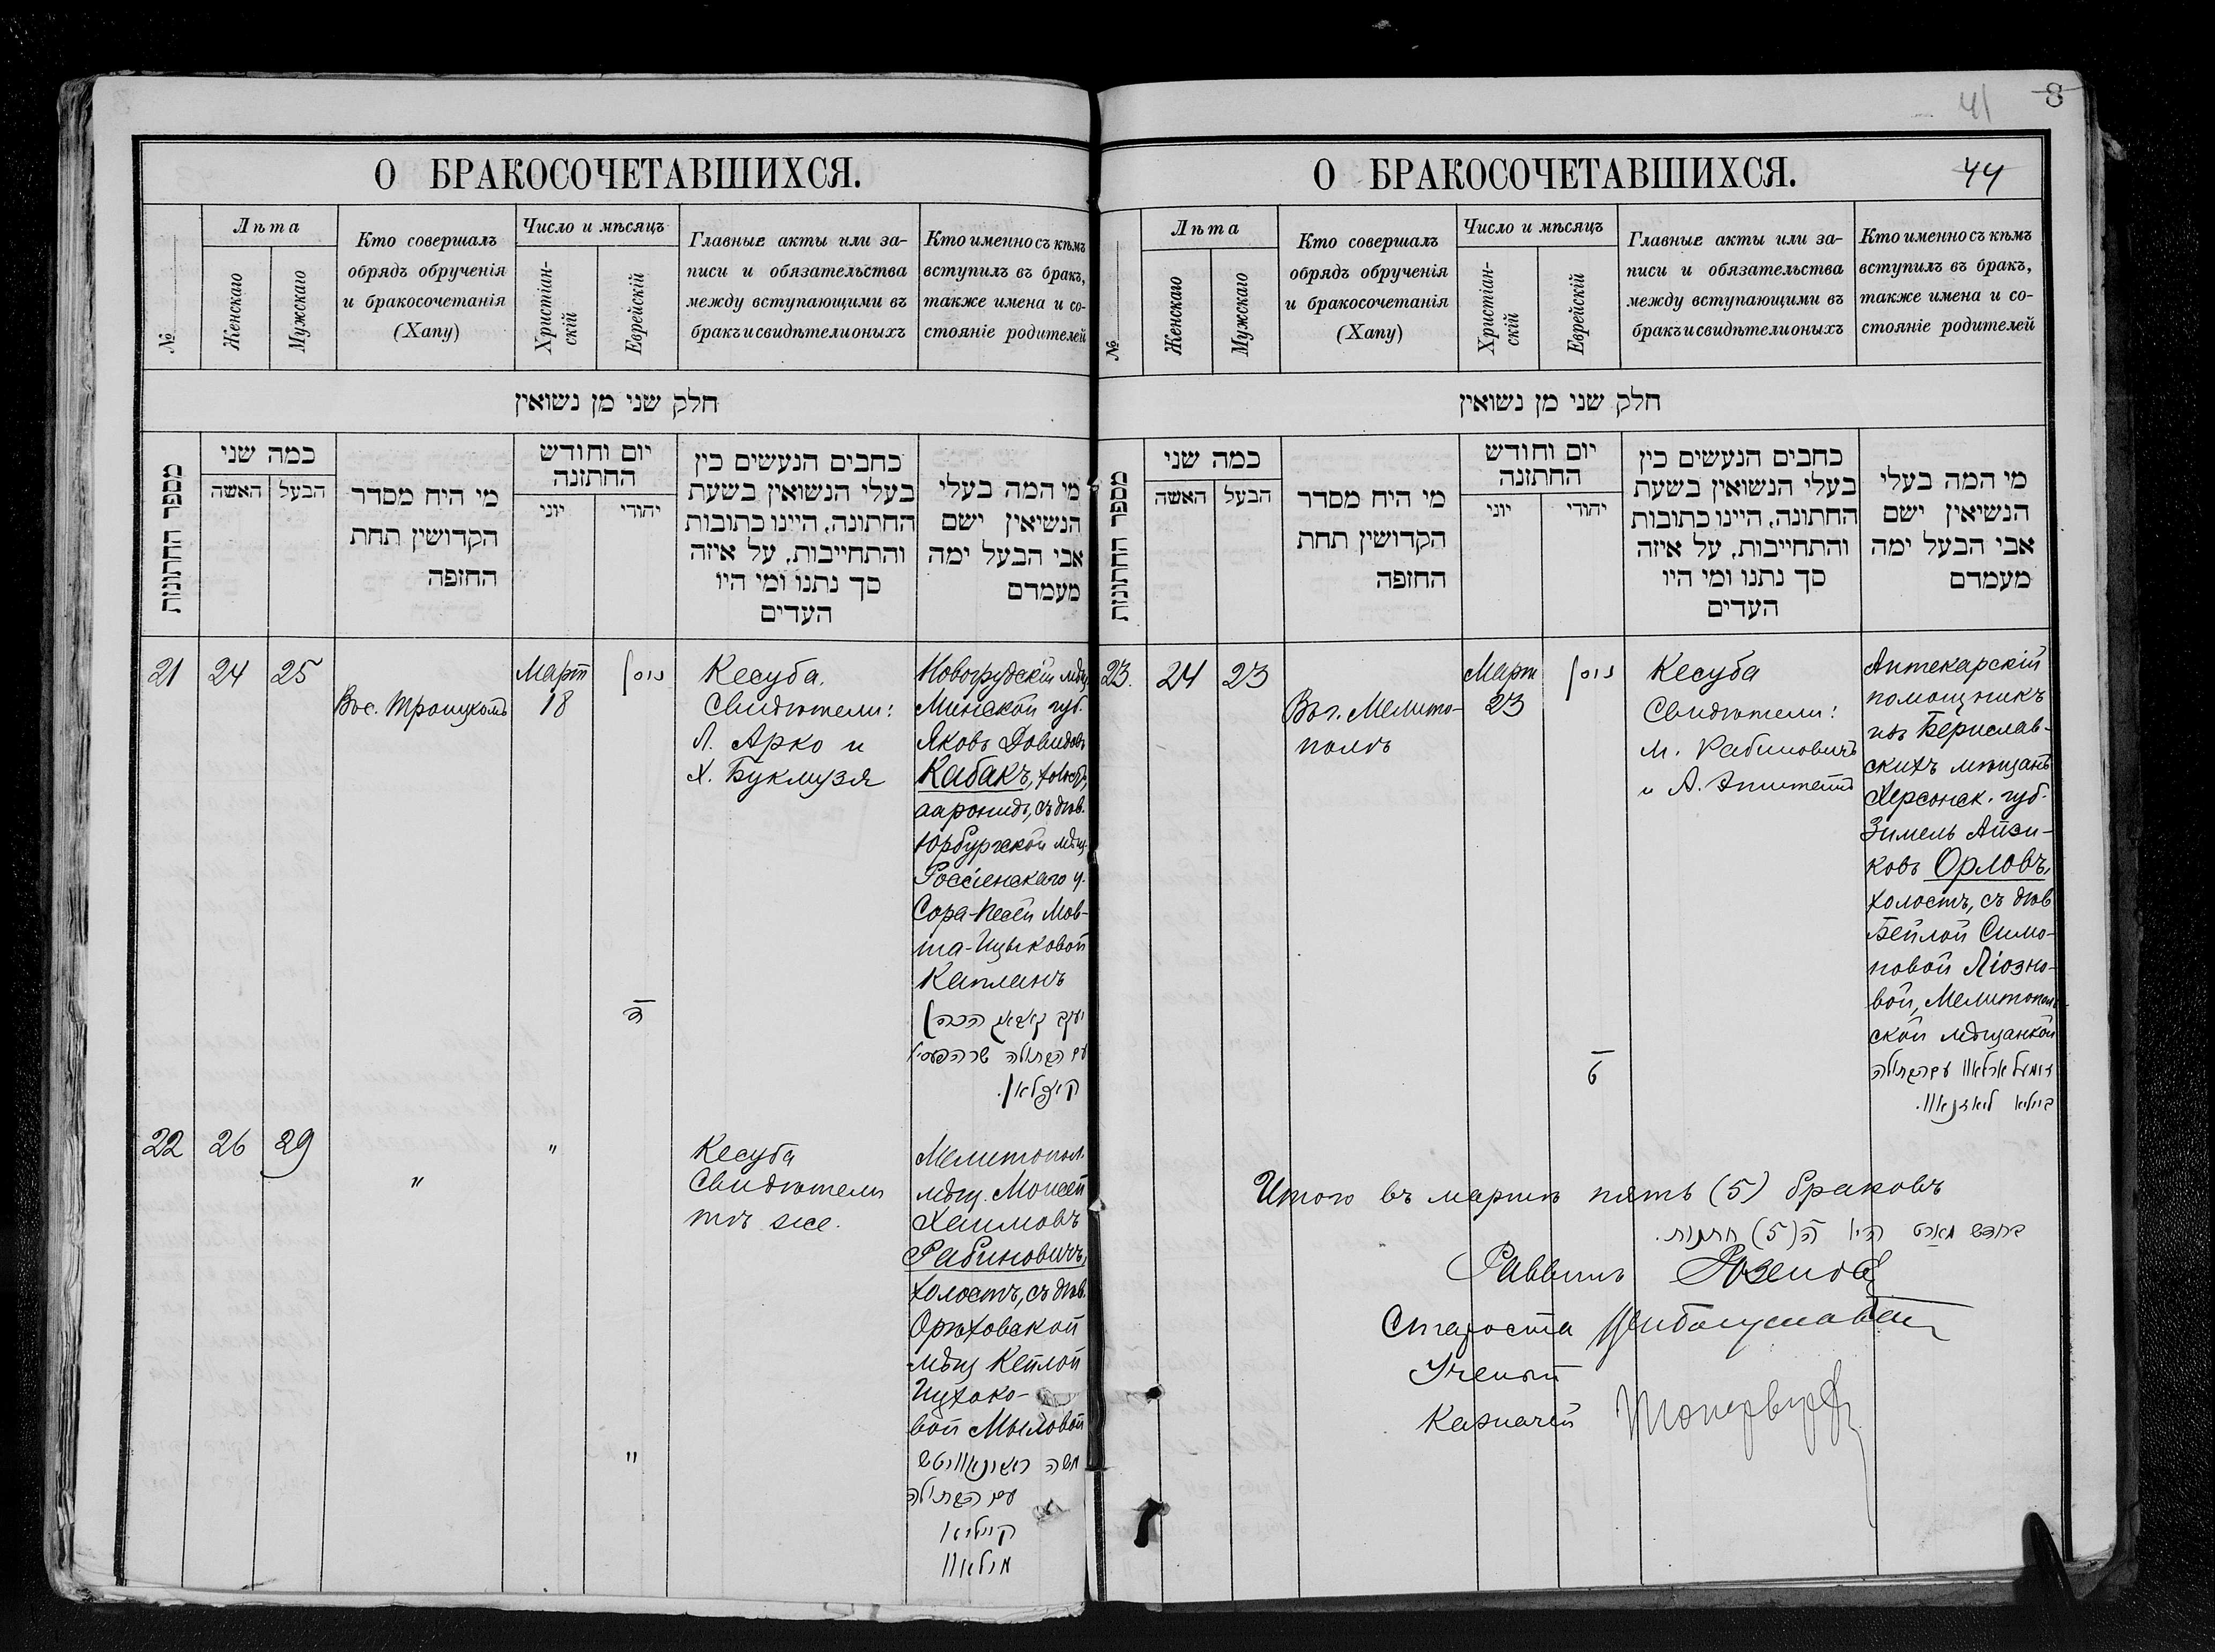 О БРАКОСОЧЕТАВШИХСЯ.
№
Лѣта
Женскаго
Мужскаго
Кто совершалъ
обрядъ обрученія
и бракосочетанія
(Хапу)
Число и мѣсяцъ
Христіан-
скій
Еврейскій
Главные акты или за-
писи и обязательства
между вступающими въ
бракъ и свидѣтели оныхъ
Кто именно съ кѣмъ
вступилъ въ бракъ,
также имена и со-
стояніе родителей
חלק שני מן נשואין
מספר החתונות
כמה שני
הבעל
האשה
מי היה מסדר
הקדושין תחת
החופה
יום וחודש
החתונה
יוני
יהודי
כתבים הנעשים בין
בעלי הנשואין בשעת
החתונה, היינו כתובות
והתחייבות, על איזה
סך נתנו ומי היו
העדים
מי המה בעלי
הנשיאין ישם
אבי הבעל ימה
מעמדם
21
24
25
Вос. Троицкомъ
Март
18
ניסן
ה
Кесуба.
Свидѣтели:
Л. Арко и
Х. Буклузя
Новогрудскій мѣщ.
Минской губ.
Яковъ Довидовъ
Кабакъ, холостъ,
ааронидъ, съ дѣв.
Юрбургской мѣщ.
Россіенскаго у.
Сора-Песей Мов-
ша-Ицыковой
Капланъ
22
26
29
"
"
"
Кесуба
Свидѣтели
тѣ же.
Мелитопол.
мѣщ. Моисей
Хаимовъ
Рабиновичъ,
холостъ, съ дѣв.
Орѣховской
мѣщ Кейлой
Ицхоко-
вой Мыловой
משה ראבינאוויטש
עם הבתולה
קיילא
מילאוו
41
8
О БРАКОСОЧЕТАВШИХСЯ.
44
№
Лѣта
Женскаго
Мужскаго
Кто совершалъ
обрядъ обрученія
и бракосочетанія
(Хапу)
Число и мѣсяцъ
Христіан-
скій
Еврейскій
Главные акты или за-
писи и обязательства
между вступающими въ
бракъ и свидѣтели оныхъ
Кто именно съ кѣмъ
вступилъ въ бракъ,
также имена и со-
стояніе родителей
חלק שני מן נשואין
מספר החתונות
כמה שני
הבעל
האשה
מי היה מסדר
הקדושין תחת
החופה
יום וחודש
החתונה
יוני
יהודי
כתבים הנעשים בין
בעלי הנשואין בשעת
החתונה, היינו כתובות
והתחייבות, על איזה
סך נתנו ומי היו
העדים
מי המה בעלי
הנשיאין ישם
אבי הבעל ימה
מעמדם
23.
24
23
Въ г. Мелито-
полѣ
Март
23
ניסן
Кесуба
Свидѣтели:
М. Рабиновичъ
и А. Эпштейнъ
Аптекарскій
помощникъ
изъ Берислав-
скихъ мѣщанъ
Херсонск. губ.
Зимель Айзи-
ковъ Орловъ,
холостъ, съ дѣв
Бейлой Симо-
новой Ліозно-
вой, Мелитополь-
ской мѣщанкой
זימעל ארלאוו עם הבתולה
ביילא ליאזנאוו.
Итого въ мартѣ пять (5) браковъ
בחדש מארט היו ה(5) חתנות.
Раввинъ
Староста
Ученый
Казначей